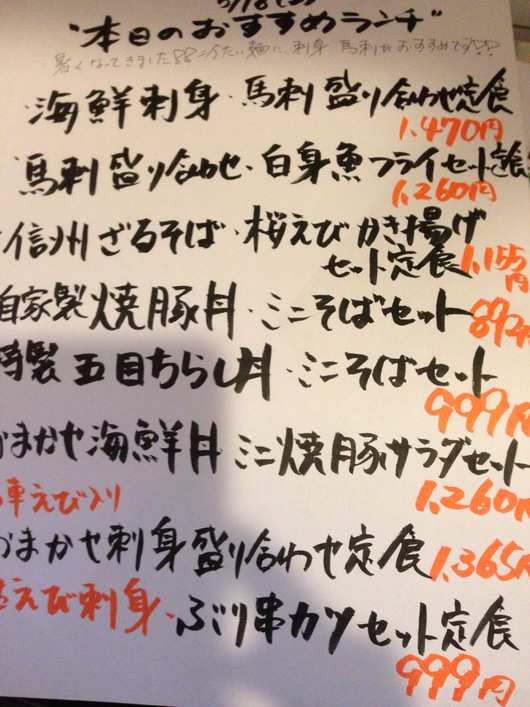 "本日のおすすめランチ"
暑くなってきました 冷たい麺に、刺身 馬刺がおすすめです!!
・海鮮刺身・馬刺盛り合わせ定食
1,470円
馬刺盛り合わせ・白身魚フライセット定食
1,260円
信州ざるそば・桜えびかき揚げ
セット定食 1,155円
自家製焼豚丼・ミニそばセット
特製五目ちらし丼・ミニそばセット
999円
おまかせ海鮮丼 ミニ焼豚サラダセット
車えび入り 1,260円
おまかせ刺身盛り合わせ定食 1,365円
えび刺身・ぶり串カツセット定食
999円